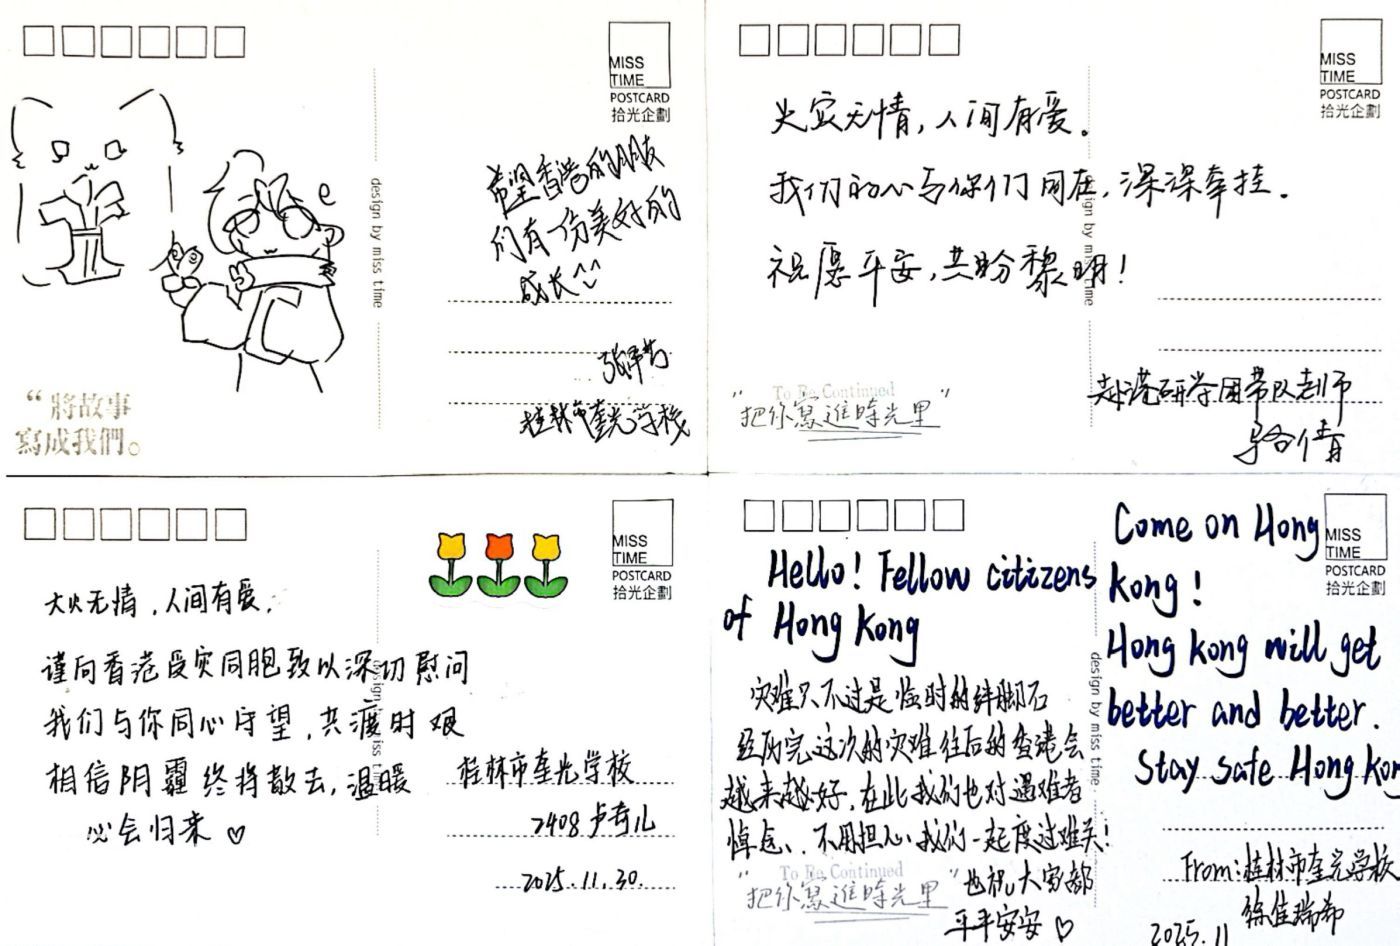 MISS
TIME
POSTCARD
拾光企劃
希望香港的朋友
们有一份美好的
成长^^
桂林市奎光学校
design by miss time
“將故事
寫成我們。
MISS
TIME
POSTCARD
拾光企劃
火灾无情，人间有爱。
我们的心与你们同在，深深牵挂。
祝愿平安，共盼黎明！
design by miss time
赴港研学团带队老师
To Be Continued
“把你寫進時光里”
MISS
TIME
POSTCARD
拾光企劃
大火无情，人间有爱，
谨向香港受灾同胞致以深切慰问
我们与你同心守望，共渡时艰
相信阴霾终将散去，温暖
必会归来♡
design by miss time
桂林市奎光学校
2408 卢奇儿
2025.11.30.
MISS
TIME
POSTCARD
拾光企劃
Hello! Fellow citizens
of Hong Kong
灾难只不过是临时的绊脚石
经历完这次的灾难往后的香港会
越来越好，在此我们也对遇难者
悼念、不用担心我们一起度过难关！
也祝大家都
平平安安♡
To Be Continued
“把你寫進時光里”
design by miss time
Come on Hong
Kong!
Hong Kong will get
better and better.
Stay safe Hong Kong
From:桂林市奎光学校
徐佳瑞希
2025.11